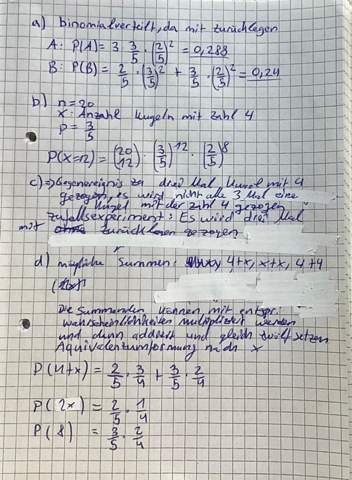 a) binomialverteilt, da mit zurücklegen
A: P(A) = 3 · 3/5 · (2/5)² = 0,288
B: P(B) = 2/5 · (3/5)² + 3/5 · (2/5)² = 0,24
b) n=20
X: Anzahl Kugeln mit Zahl 4
p = 3/5
P(X=12) = (20 12) · (3/5)^12 · (2/5)^8
c) => Gegenereignis zu drei Mal Kugel mit 4
gezogen, es wird nicht alle 3 Mal eine
Kugel mit der Zahl 4 gezogen
Zufallsexperiment: Es wird drei Mal
mit zurücklegen gezogen
d) mögliche Summen: 4+x, x+x, 4+4
Die Summanden können mit entspr.
Wahrscheinlichkeiten multipliziert werden
und dann addiert und gleich zwölf setzen
Äquivalenzumformung nach x
P(4+x) = 2/5 · 3/4 + 3/5 · 2/4
P(2x) = 2/5 · 1/4
P(8) = 3/5 · 2/4